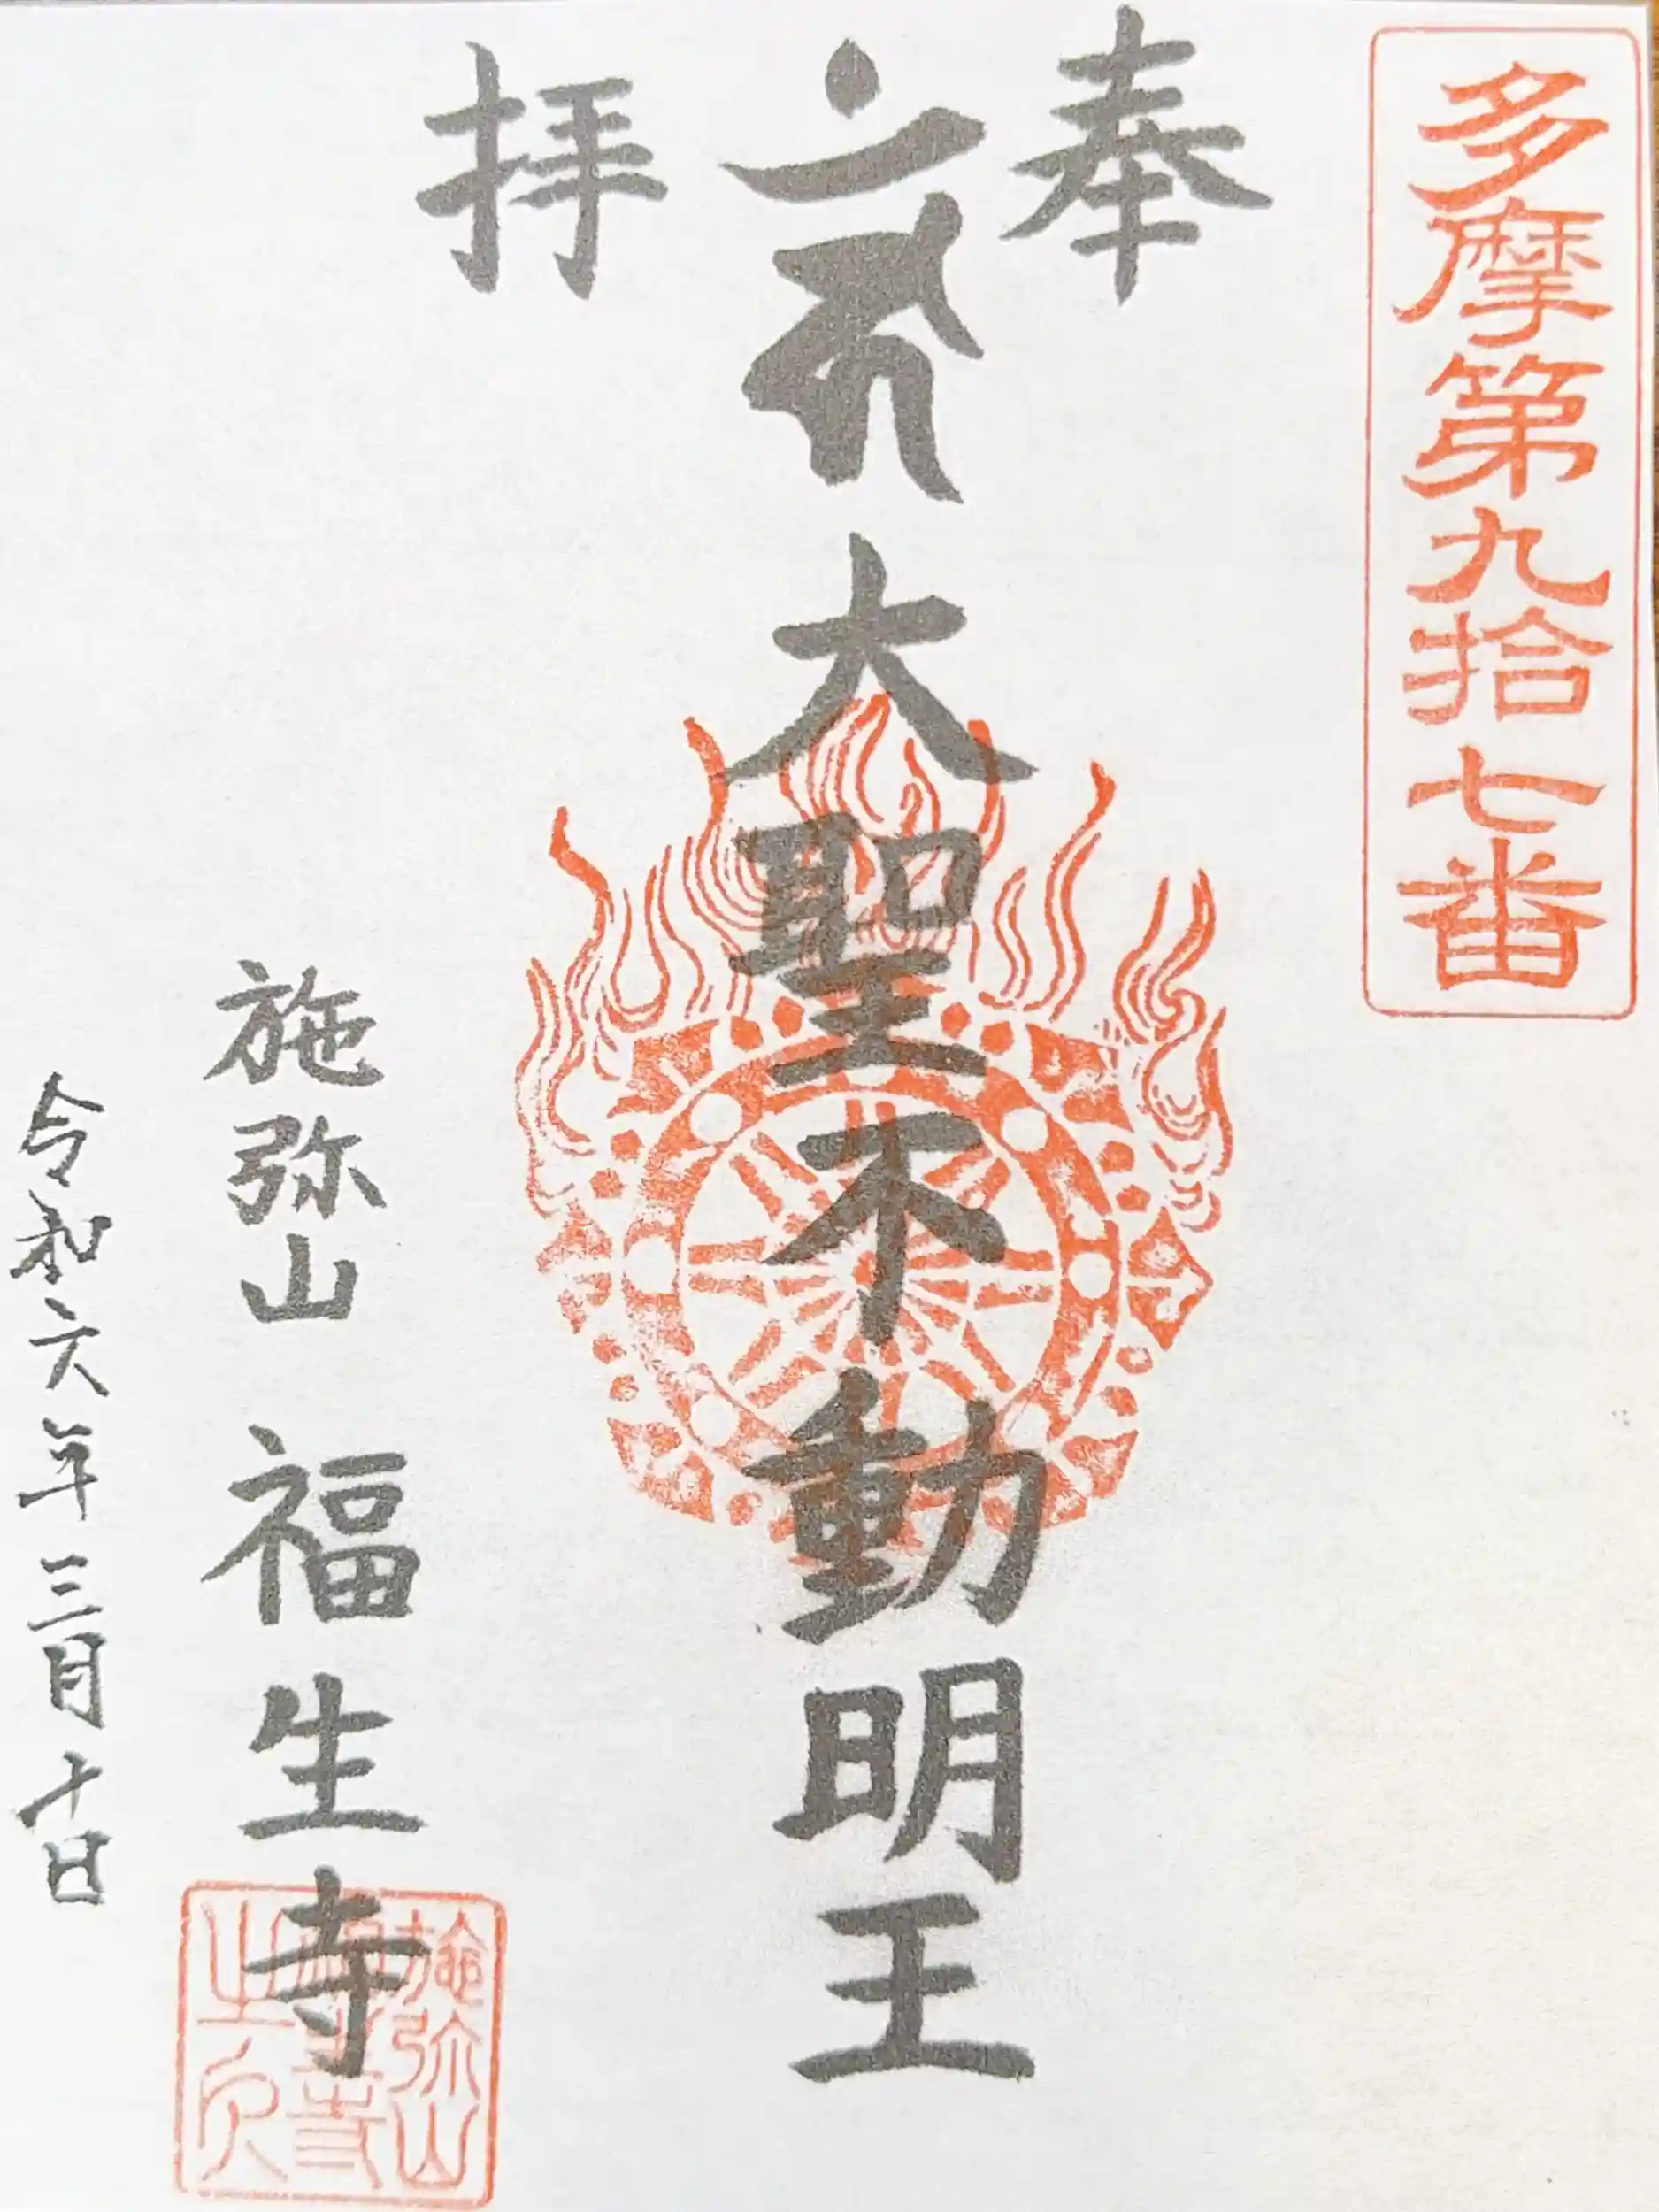 多摩第九拾七番
奉
大聖不動明王
拝
施弥山 福生寺
施弥山
令和六年三月十日